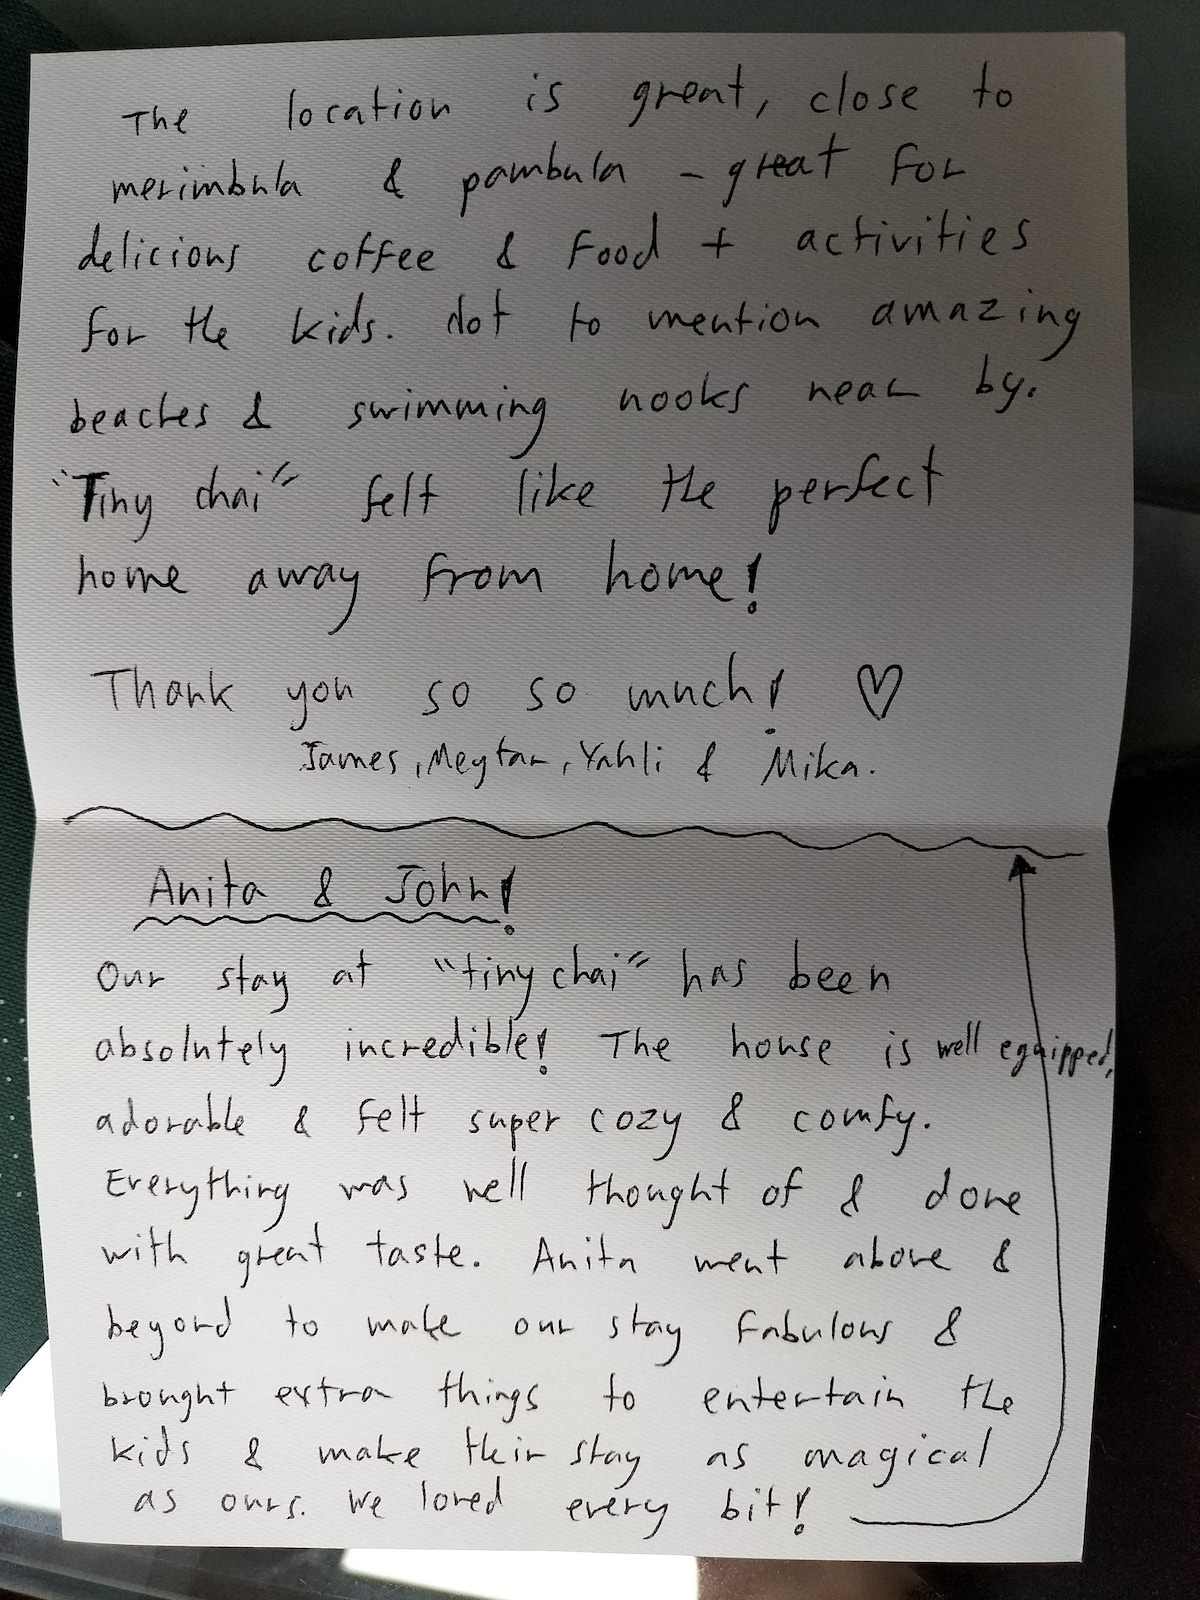 Anita & John!
Our stay at "tiny chai" has been
absolutely incredible! The house is well equipped,
adorable & felt super cozy & comfy.
Everything was well thought of & done
with great taste. Anita went above &
beyond to make our stay fabulous &
brought extra things to entertain the
kids & make their stay as magical
as ours. We loved every bit!
The location is great, close to
merimbula & pambula - great for
delicious coffee & food + activities
for the kids. Not to mention amazing
beaches & swimming nooks near by.
"Tiny chai" felt like the perfect
home away from home!
Thank you so so much! ♡
James, Meytar, Yahli & Mika.